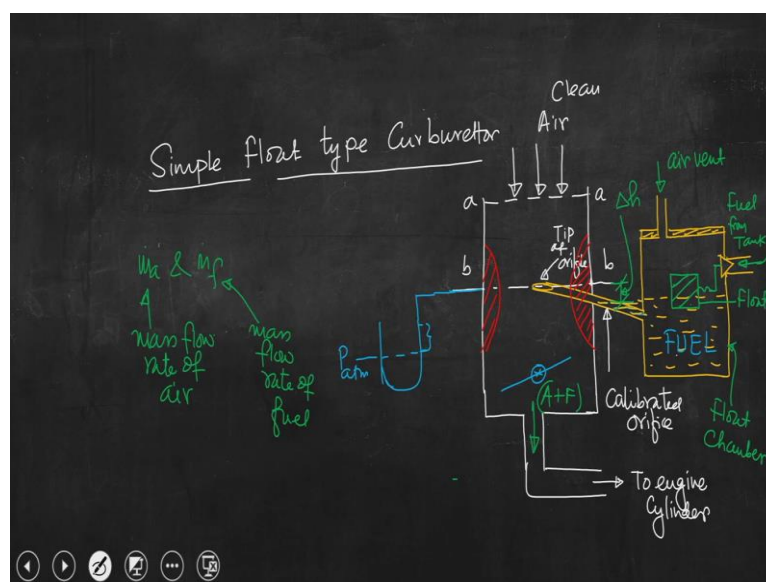 Simple float type Curburettor
Clean
Air
a
a
b
b
Tip
of
orifice
Δh
air vent
Fuel
from
Tank
Float
FUEL
Float
Chamber
Calibrated
orifice
(A+F)
To engine
Cylinder
Patm
ṁa & ṁf
mass flow
rate of
air
mass
flow
rate of
fuel